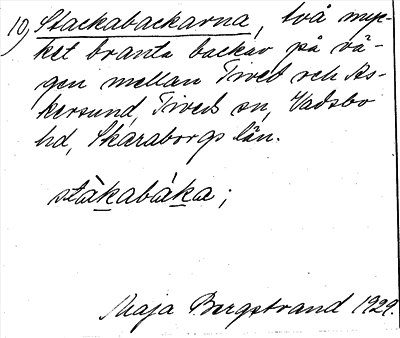 10) Stackabackarna, två myc-
ket branta backar på vä-
gen mellan Tived och As-
kersund, Tiveds sn, Vadsbo
hd, Skaraborgs län.
stàkabáka;
Maja Bergstrand 1929.